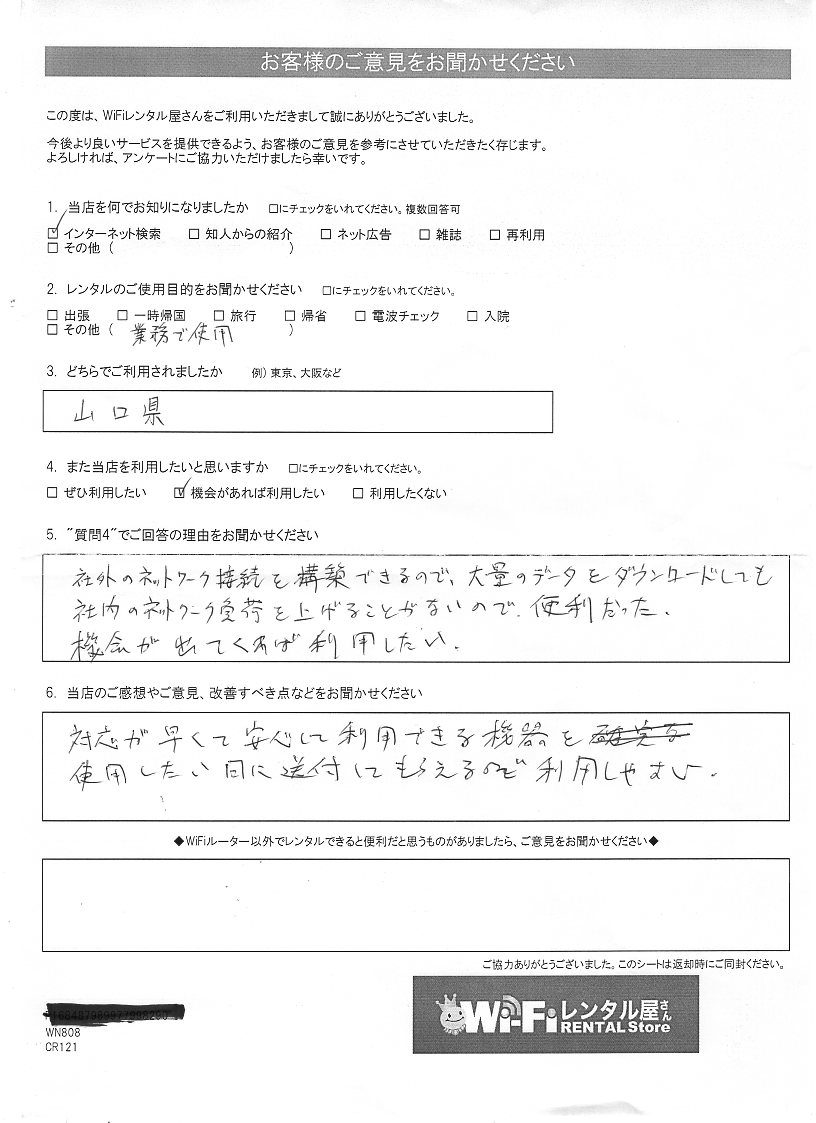 お客様のご意見をお聞かせください
この度は、WiFiレンタル屋さんをご利用いただきまして誠にありがとうございました。
今後より良いサービスを提供できるよう、お客様のご意見を参考にさせていただきたく存じます。
よろしければ、アンケートにご協力いただけましたら幸いです。
1. 当店を何でお知りになりましたか □にチェックをいれてください。複数回答可
☑ インターネット検索 □ 知人からの紹介 □ ネット広告 □ 雑誌 □ 再利用
□ その他 ( )
2. レンタルのご使用目的をお聞かせください □にチェックをいれてください。
□ 出張 □ 一時帰国 □ 旅行 □ 帰省 □ 電波チェック □ 入院
□ その他 ( 業務で使用 )
3. どちらでご利用されましたか 例) 東京、大阪など
山口県
4. また当店を利用したいと思いますか □にチェックをいれてください。
□ ぜひ利用したい ☑ 機会があれば利用したい □ 利用したくない
5. "質問4"でご回答の理由をお聞かせください
社外のネットワーク接続を構築できるので、大量のデータをダウンロードしても
社内のネットワーク負荷を上げることがないので、便利だった。
機会が出てくれば利用したい。
6. 当店のご感想やご意見、改善すべき点などをお聞かせください
対応が早くて安心して利用できる機器を
使用したい日に送付してもらえるので利用しやすい。
◆WiFiルーター以外でレンタルできると便利だと思うものがありましたら、ご意見をお聞かせください◆
ご協力ありがとうございました。このシートは返却時にご同封ください。
WN808
CR121
Wi-Fiレンタル屋さん
RENTAL Store